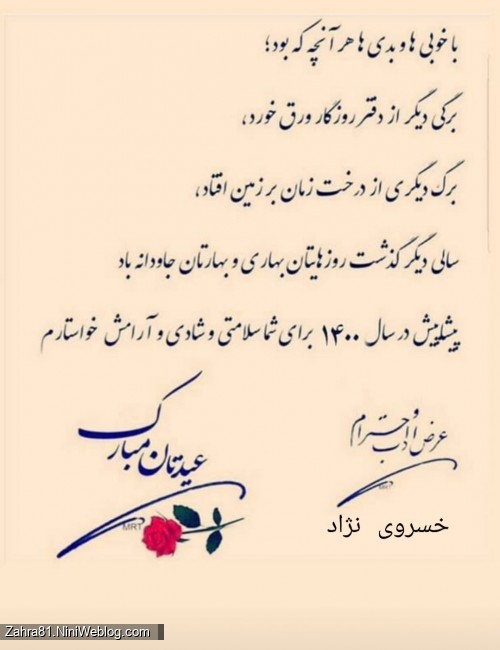 با خوبی ها و بدی ها هر آنچه که بود؛
برگی دیگر از دفتر روزگار ورق خورد،
برگ دیگری از درخت زمان بر زمین افتاد،
سالی دیگر گذشت روزهایتان بهاری و بهارتان جاودانه باد
پیشاپیش در سال ۱۴۰۰ برای شما سلامتی و شادی و آرامش خواستارم
عرض ادب و احترام
خسروی نژاد
عیدتان مبارک
MRT
Zahra81.NiniWeblog.com